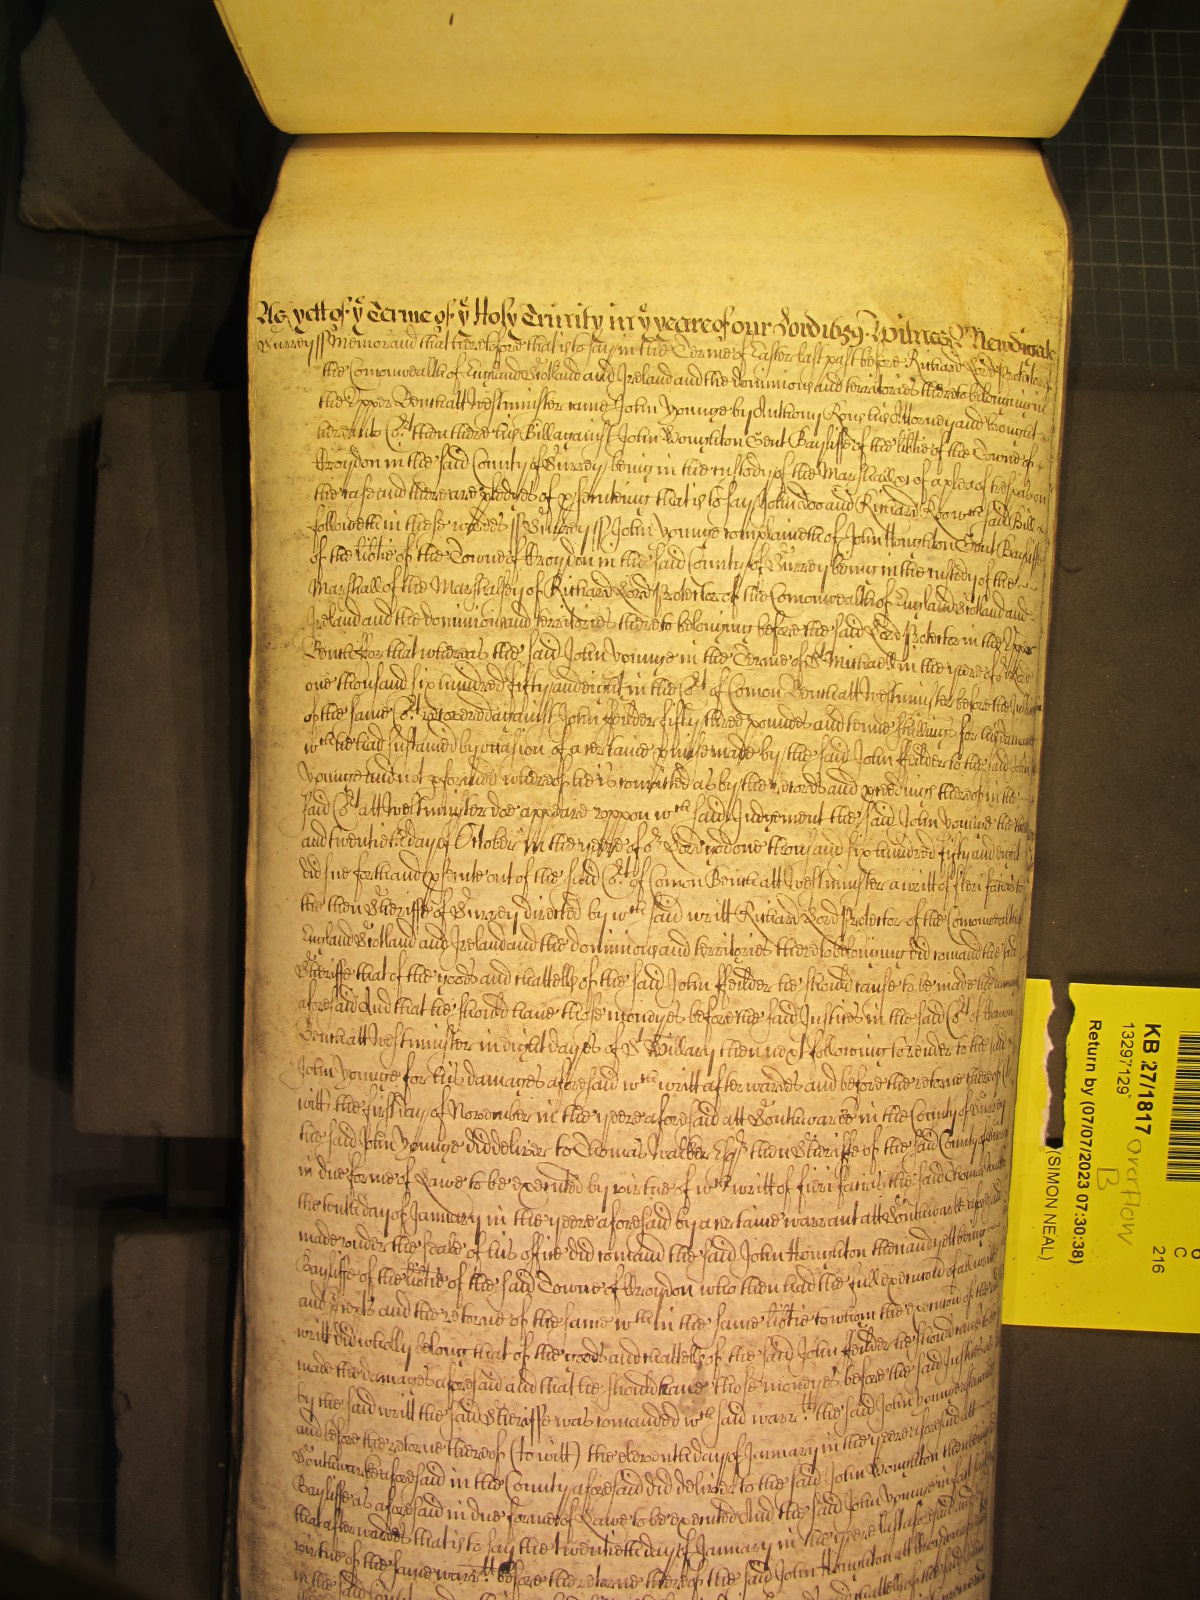 As yett of yͤ Terme of yͤ Holy Trinity in yͤ yeare of our Lord 1659. Witnes R Newdigate
Surrey ss Memorand that heretofore that is to say in the Terme of Easter last past before Richard Lord Protector of
the Comonwealth of England Scotland and Ireland and the dominions and territories thereto belonging in
the Upper Bench att Westminster came John Younge by Anthony Rous his Attorney and brought
here into Coʳt then there his Bill against John Houghton Gent Bayliffe of the libtie of the Towne of
Croydon in the said County of Surrey being in the custody of the Marshall &c of a plea of trespas on
the case and there are pledges of psecuting that is to say John Doo and Richard Roo wᶜʰ said Bill
followeth in these wordes ss Surrey ss John Younge complaineth of John Houghton Gent Bayliffe
of the libtie of the Towne of Croydon in the said County of Surrey being in the custody of the
Marshall of the Marshalsey of Richard Lord Protector of the Comonwealth of England Scotland and
Ireland and the dominions and territories thereto belonging before the said Lord Protector in the Upper
Bench For that whereas the said John Younge in the Terme of Sᵗ Michaell in the yeere of oʳ Lord
one thousand six hundred fifty and eight in the Coʳt of Comon Bench att Westminster before the Justices
of the same Coʳt recovered against John Feilder fifty three poundes and tenne shillings for his damages
wᶜʰ he had sustained by occasion of a certaine pmise made by the said John Feilder to the said John
Younge and not pformed whereof he is convicted as by the records and pceedings thereof in the
said Coʳt att Westminster doe appeare uppon wᶜʰ said Judgement the said John Younge the
and twentieth day of October in the yeere of oʳ Lord god one thousand six hundred fifty and eight
did sue forth and psecute out of the said Coʳt of Comon Bench att Westminster a writt of fieri facias to
the then Sheriffe of Surrey directed by wᶜʰ said writt Richard Lord Protector of the Comonwealth of
England Scotland and Ireland and the dominions and territories thereto belonging did comand the said
Sheriffe that of the goods and chattells of the said John Feilder he should cause to be made the damages
aforesaid And that he should have those moneyes before the said Justices in the said Coʳt of Comon
Bench att Westminster in eight dayes of Sᵗ Hillary then next following to render to the said
John Younge for his damages aforesaid wᶜʰ writt afterwardes and before the retorne thereof (to
witt) the first day of November in the yeere aforesaid att Southwarke in the County of Surrey
the said John Younge did deliver to Thomas Walker Esqʳ then Sheriffe of the said County of Surrey
in due forme of Lawe to be executed by virtue of wᶜʰ writt of fieri facias the said Thomas Walker
the tenth day of January in the yeere aforesaid by a certaine warrant att Southwarke aforesaid
made under the seale of his office did comand the said John Houghton then and yett being
Bayliffe of the libtie of the said Towne of Croydon who then had the full execucon of all writts
and pcepts and the retorne of the same wᶜʰin the same libtie to whom the execucon of the
writt did wholly belong that of the goods and chattells of the said John Feilder he should cause to be
made the damages aforesaid and that he should have those moneyes before the said Justices as
by the said writt the said Sheriffe was comanded wᶜʰ said warrᵗᵗ the said John Younge afterwards
and before the retorne thereof (to witt) the eleventh day of January in the yeere aforesaid att
Southwarke aforesaid in the County aforesaid did deliver to the said John Houghton then being
Bayliffe as aforesaid in due forme of Lawe to be executed And the said John Younge in fact saith
that afterwardes that is to say the twentieth day of January in the yeere last aforesaid and by
virtue of the same warrᵗᵗ before the retorne thereof the said John Houghton att Croydon
in the said County